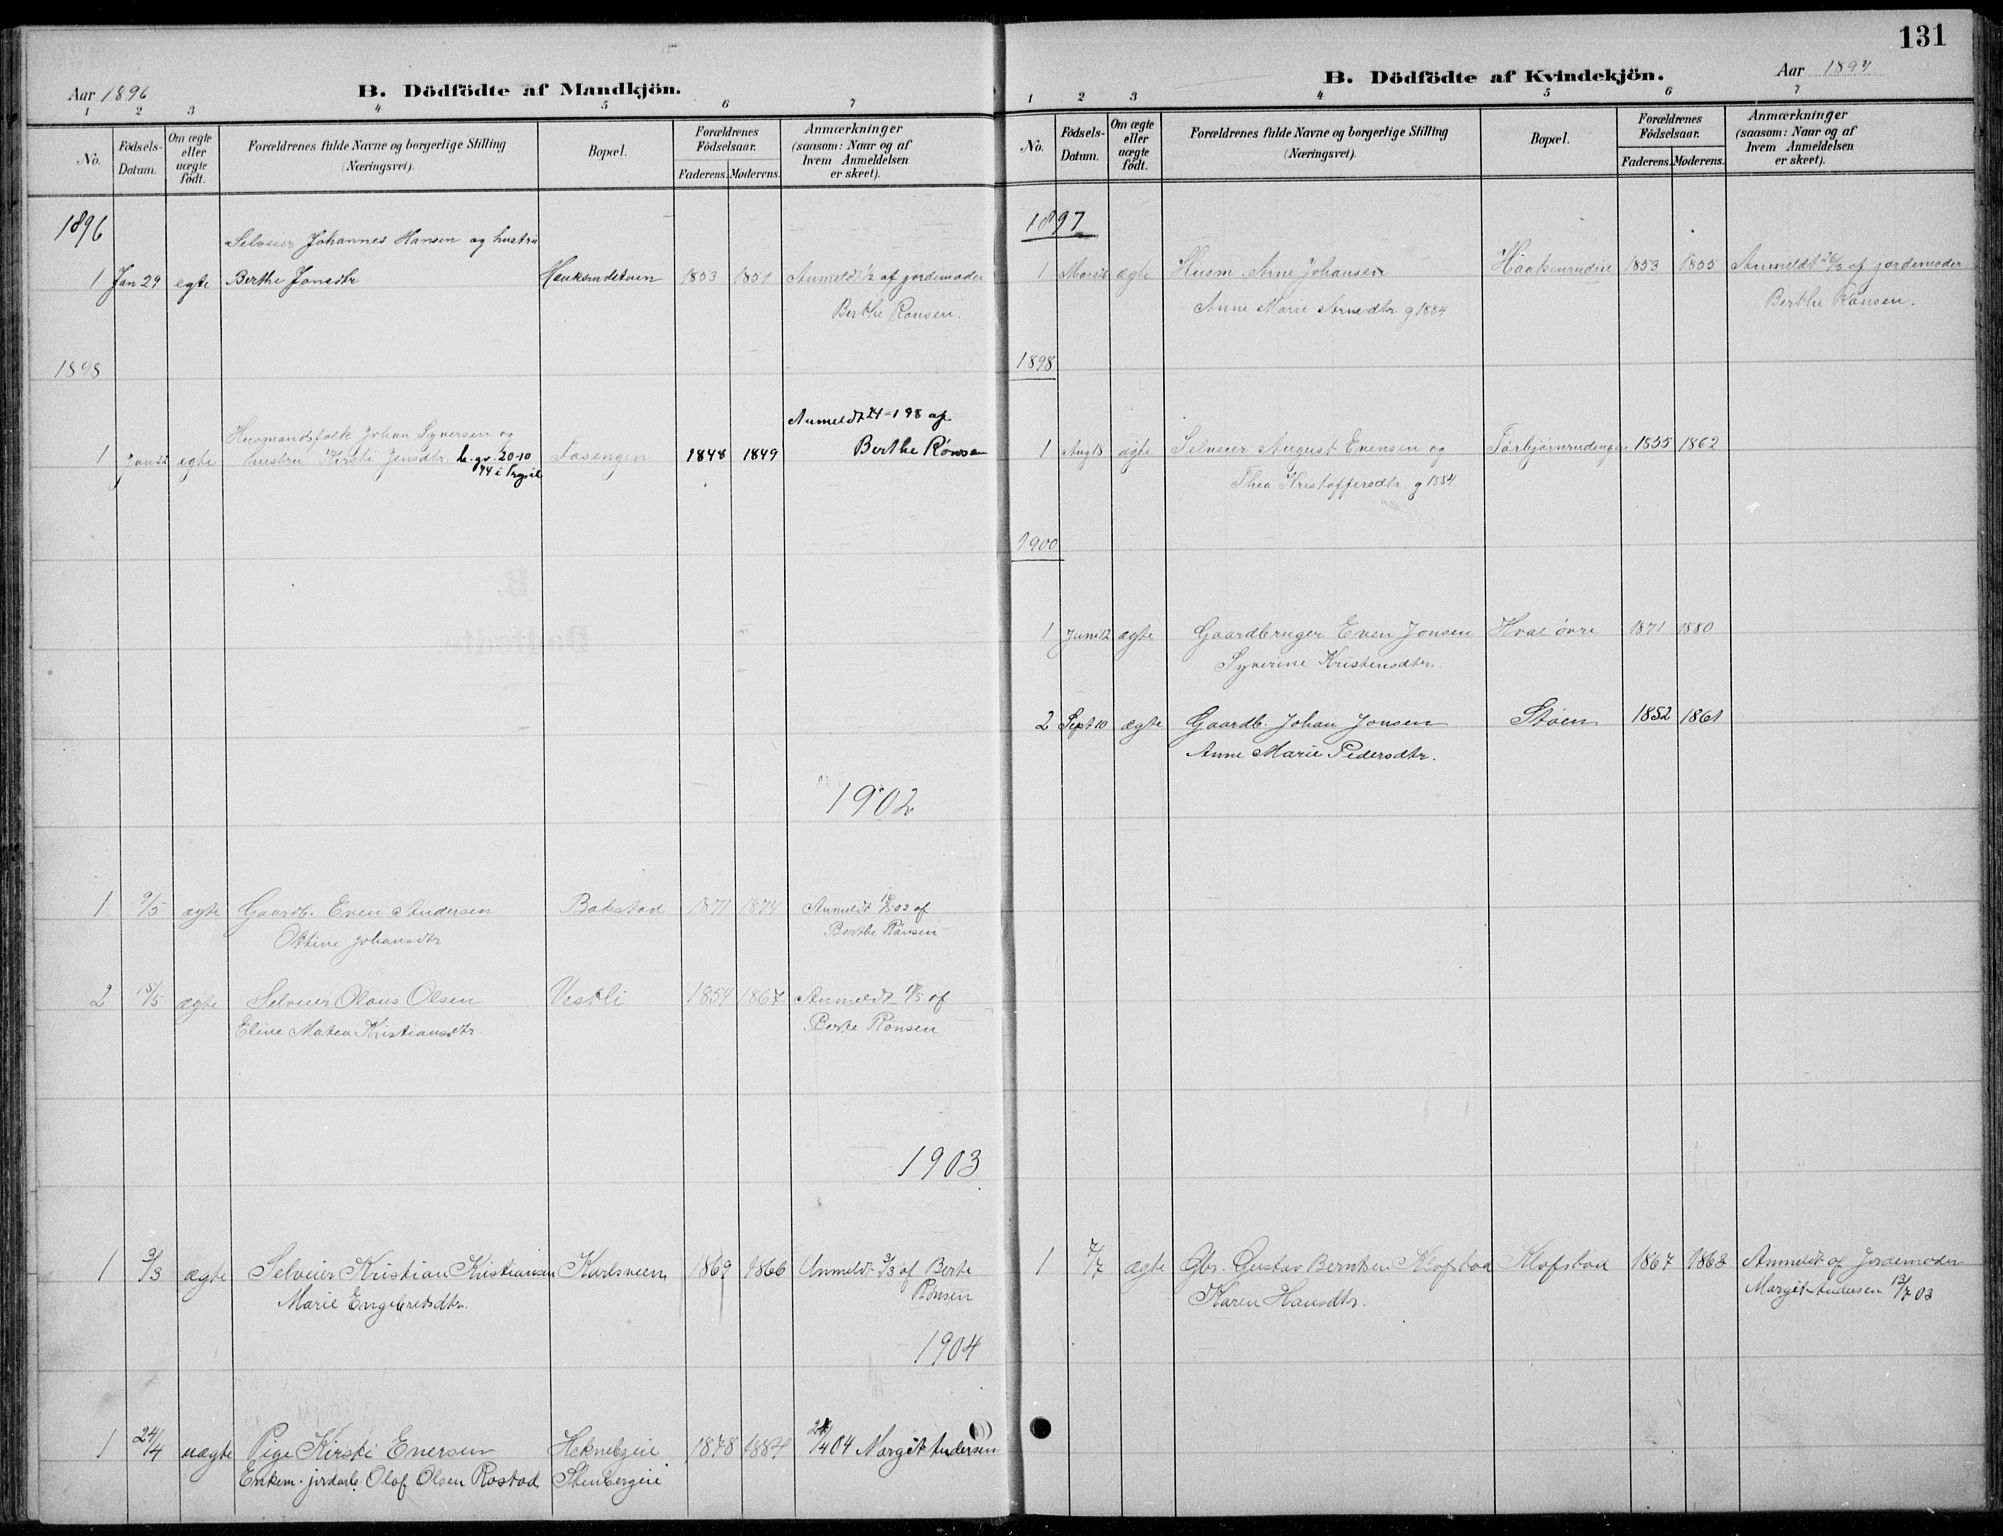 Aar 1896
B. Dödfödte af Mandkjön.
1 2 3 4 5 6 7
No.
Födsels-
Datum.
Om ægte
eller
uægte
födt.
Forældrenes fulde Navne og borgerlige Stilling
(Næringsvei).
Bopæl.
Forældrenes
Födselsaar.
Faderens. Moderens.
Anmærkninger
(saasom: Naar og af
hvem Anmeldelsen
er skeet).
1896
Selveier Johannes Hansen og hustru
1 Jan 29 egte Berthe Jonsdtr 1853 1851 Anmeldt 1/2 af jordemoder
Berthe Rønsen.
1898
Anmeldt 24-1 98 af
Husmandsfolk Johan Syversen og
1 Jan 22 egte hustru Kirsti Jensdtr. b. gv. 20-10 Fasengen 1848 1849 Berthe Rønsen
74 i Trysil
1902
1 9/5 ægte Gaardb. Even Andersen Bakstad 1871 1874 Anmeldt 02 af
Oktine Johansdtr Berthe Rønsen
2 15/5 ægte Selveier Olaus Olsen Vestli 1854 1867 Anmeldt af
Eline Matea Kristiansdtr. Berte Rønsen
1903
1 3/3 ægte Selveier Kristian Kristiansen Karlsveen 1869 1866 Anmeldt 3/3 af Berte
Marie Engebretsdtr. Rønsen
1904
1 24/4 uægte Pige Kirsti Enersen 1878 1884 24/4 04 Margit Andersen
Enkem. jordarb. Olof Olsen Rostad Stenbergeie
131
B. Dödfödte af Kvindekjön.
Aar 1897
1 2 3 4 5 6 7
No.
Födsels-
Datum.
Om ægte
eller
uægte
födt.
Forældrenes fulde Navne og borgerlige Stilling
(Næringsvei).
Bopæl.
Forældrenes
Födselsaar.
Faderens. Moderens.
Anmærkninger
(saasom: Naar og af
hvem Anmeldelsen
er skeet).
1897
1 ægte Husm. Arne Johansen Haakenrudeie 1853 1855 Anmeldt af jordemoder
Anne Marie Arnedtr g 1884 Berthe Rønsen.
1898
1 Aug 18 ægte Selveier August Evensen og Torbjørnrudengen 1855 1862
Thea Kristoffersdtr. g 1884
1900
1 Juni 12 ægte Gaardbruger Even Jonsen Hval øvre 1871 1880
Syverine Kristensdtr.
2 Sept 10 ægte Gaardb. Johan Jonsen Støen 1852 1861
Anne Marie Pedersdtr.
1 7/7 ægte Gbr. Gustav Berntsen Klofstad Klofstad 1867 1863 Anmeldt af Jordemoder
Karen Hansdtr. Margit Andersen 12/7 03